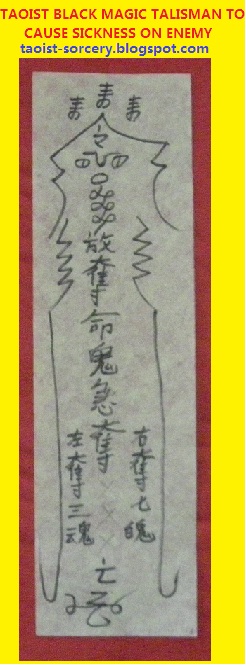 TAOIST BLACK MAGIC TALISMAN TO
CAUSE SICKNESS ON ENEMY
taoist-sorcery.blogspot.com
令
放奪命鬼急奪
右奪七魄
左奪三魂
亡